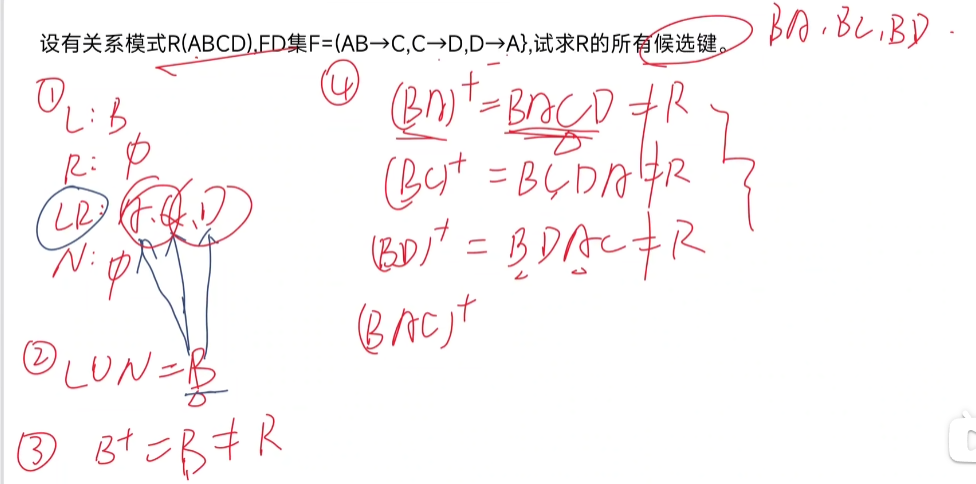 设有关系模式R(ABCD),FD集F={AB→C,C→D,D→A},试求R的所有候选键。 BA,BC,BD.
① L:B
R: φ
LR: A,C,D
N: φ
② LUN=B
③ B+=B≠R
④ (BA)+=BACD≠R
(BC)+=BCDA≠R
(BD)+=BDAC≠R
(BAC)+